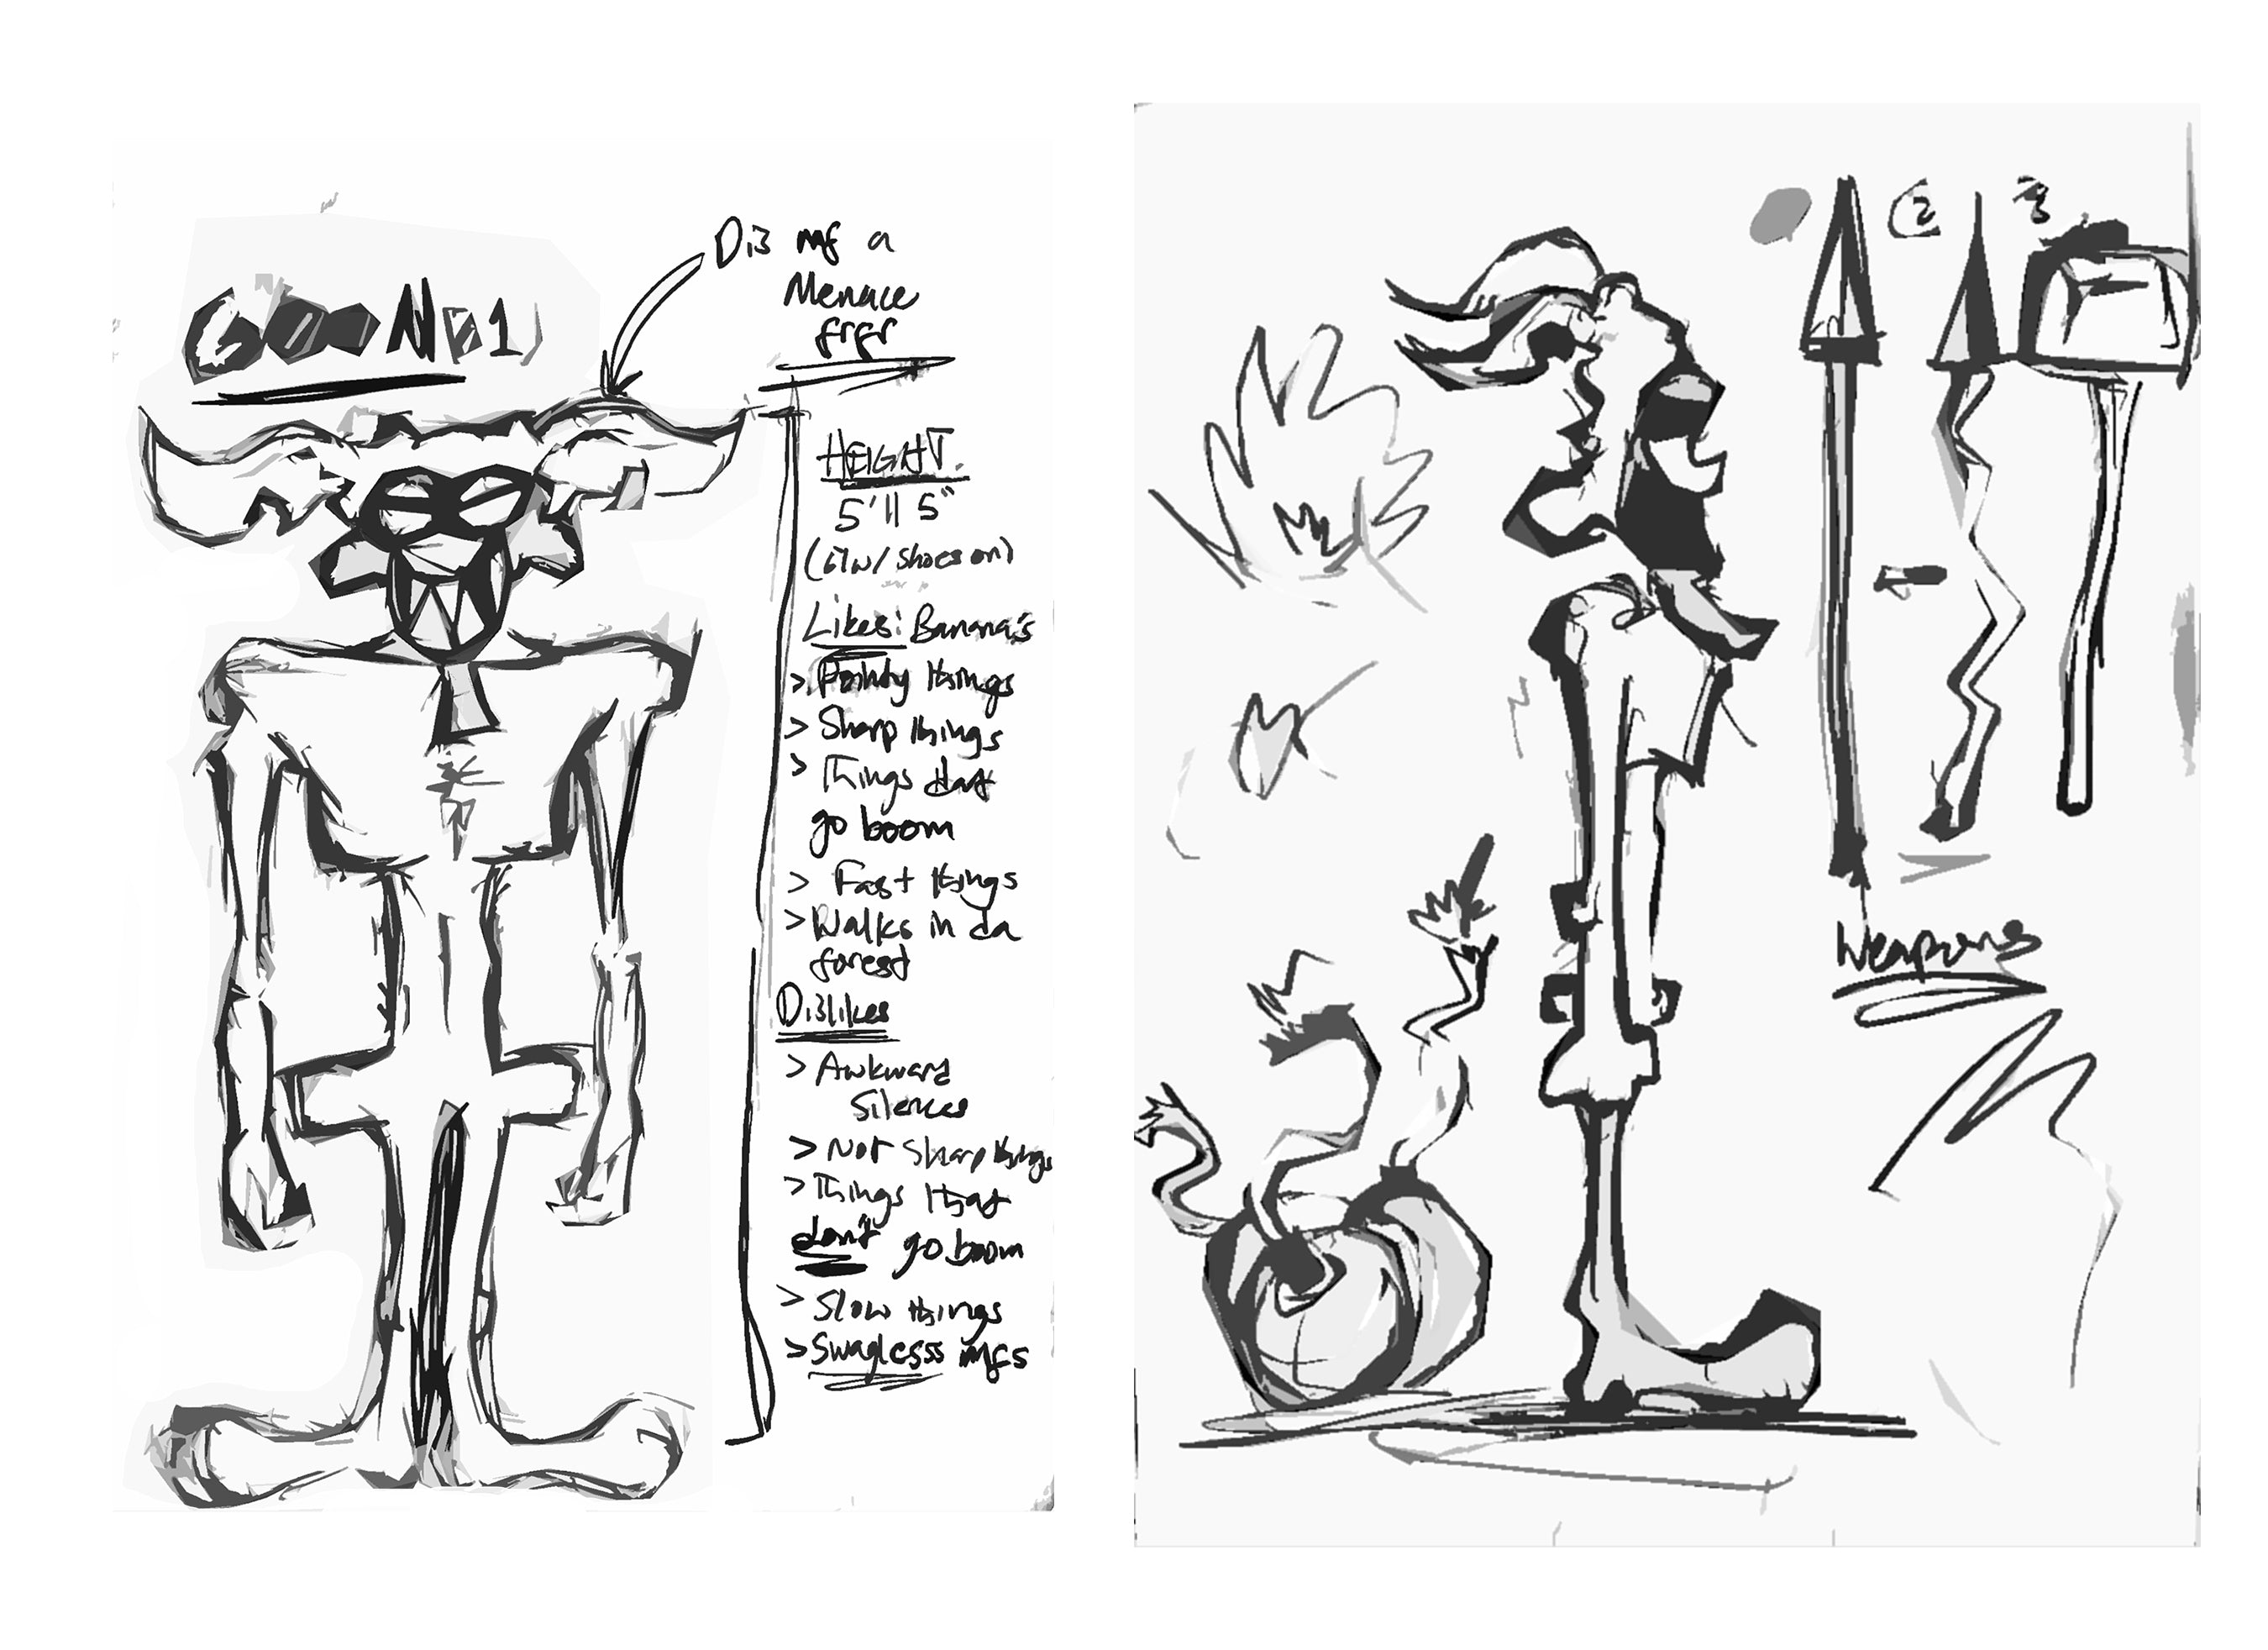 GOON 01)
Di3 mf a
Menace
frfr
HEIGHT.
5'11 5"
(w/ shoes on)
Likes: Banana's
> Pointy things
> Sharp things
> Things dat
go boom
> Fast things
> Walks in da
forest
Di3likes
> Awkward
Silences
> Not sharp things
> Things that
don't go boom
> Slow things
> Swaglesss mfs
2
3
Weapons